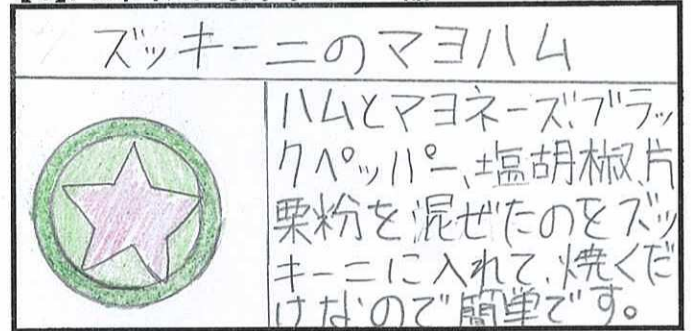 ズッキーニのマヨハム
ハムとマヨネーズ、ブラッ
クペッパー、塩胡椒、片
栗粉を混ぜたのをズッ
キーニに入れて、焼くだ
けなので簡単です。